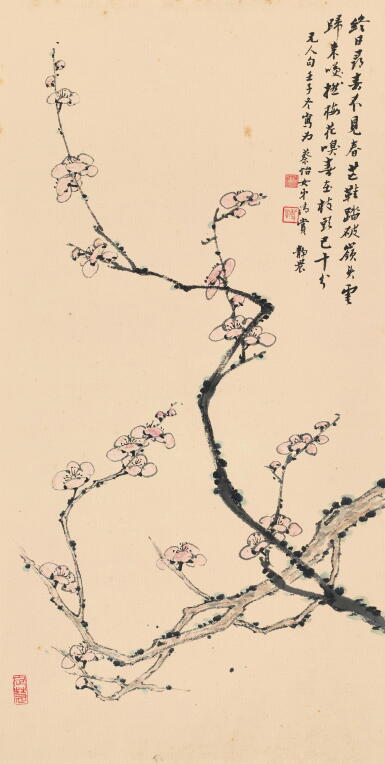 終日尋春不見春芒鞋踏破嶺頭雲
歸來笑撚梅花嗅春在枝頭已十分
元人句壬子冬寫為
蔡怡女弟清賞 靜農